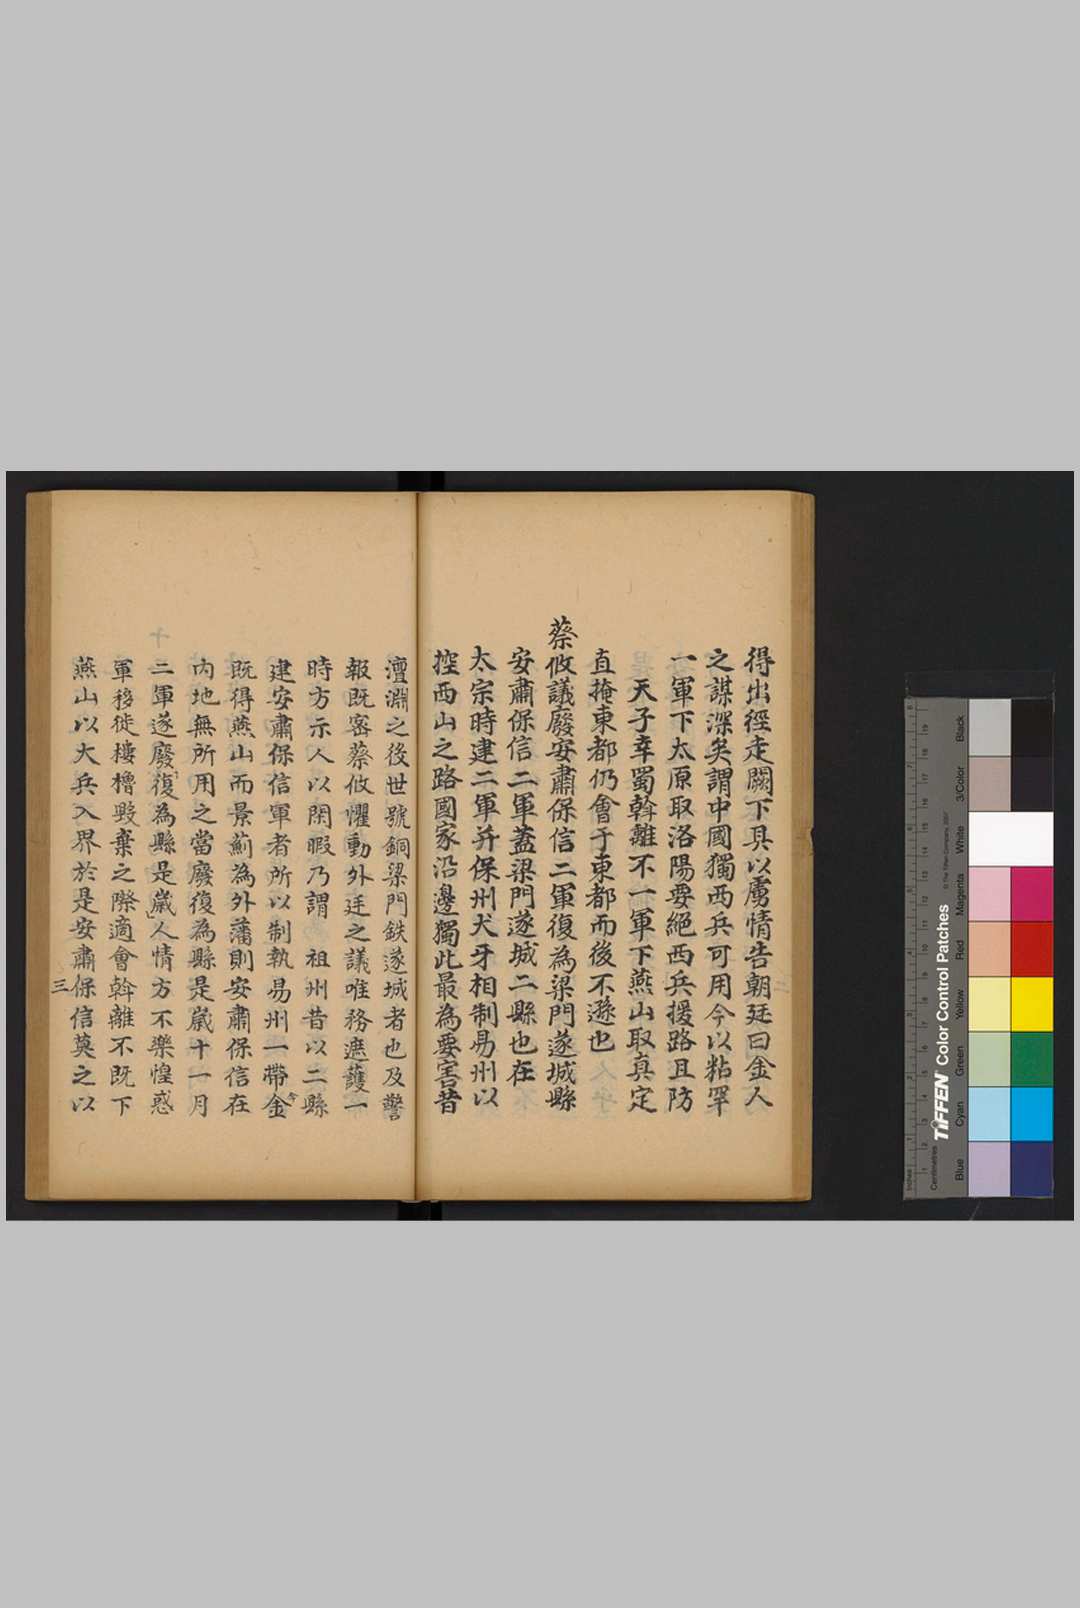 得出徑走闕下具以虜情告朝廷曰金人
之謀深矣謂中國獨西兵可用今以粘罕
一軍下太原取洛陽要絕西兵援路且防
天子幸蜀斡離不一軍下燕山取真定
直掩東都仍會于東都而後不遜也
蔡攸議廢安肅保信二軍復為梁門遂城縣
安肅保信二軍蓋梁門遂城二縣也在
太宗時建二軍并保州犬牙相制易州以
控西山之路國家沿邊獨此最為要害昔
澶淵之後世號銅梁門鉄遂城者也及警
報既密蔡攸懼動外廷之議唯務遮護一
時方示人以閑暇乃謂 祖州昔以二縣
建安肅保信軍者所以制執易州一帶今金
既得燕山而景薊為外藩則安肅保信在
內地無所用之當廢復為縣是嵗十一月
二軍遂廢復為縣是嵗人情方不樂惶惑
軍移徙樓櫓毀棄之際適會斡離不既下
燕山以大兵入界於是安肅保信莫之以
三
TIFFEN Color Control Patches
© The Tiffen Company, 2007
Centimetres
Inches
Blue
Cyan
Green
Yellow
Red
Magenta
White
3/Color
Black